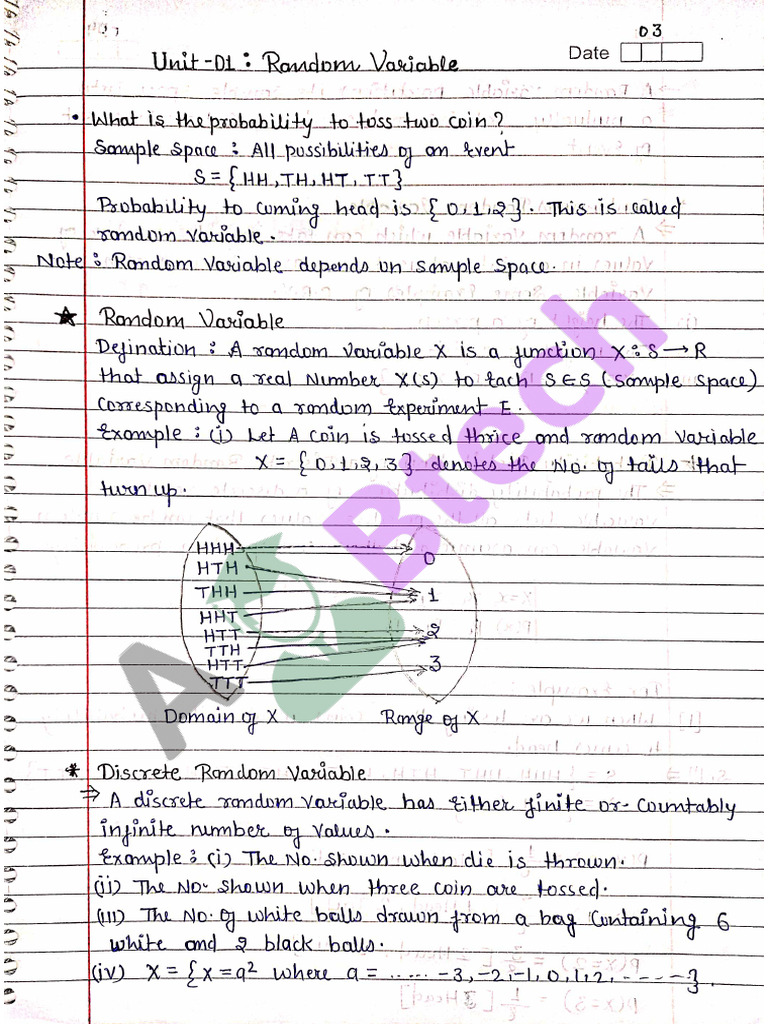 03
Date
Unit-01 : Random Variable
• What is the probability to toss two coin?
Sample Space : All possibilities of an Event
S = {HH, TH, HT, TT}
Probability to coming head is {0,1,2}. This is called
random variable.
Note : Random Variable depends on Sample Space.
★ Random Variable
Defination : A random variable X is a function X : S → R
that assign a real Number X(s) to Each S ∈ S (Sample Space)
Corresponding to a random Experiment E.
Example : (i) Let A coin is tossed thrice and random Variable
X = {0,1,2,3} denotes the No. of tails that
turn up.
HHH
0
HTH
THH
1
HHT
HTT
2
TTH
HTT
3
TTT
Domain of X
Range of X
* Discrete Random Variable
⇒ A discrete random Variable has Either finite or Countably
infinite number of Values.
Example : (i) The No. shown when die is thrown.
(ii) The No. shown when three coin are tossed.
(iii) The No. of white balls drawn from a bag Containing 6
white and 2 black balls.
(iv) X = {x = a² where a = ...... -3, -2, -1, 0, 1, 2, -----}.
A Btech